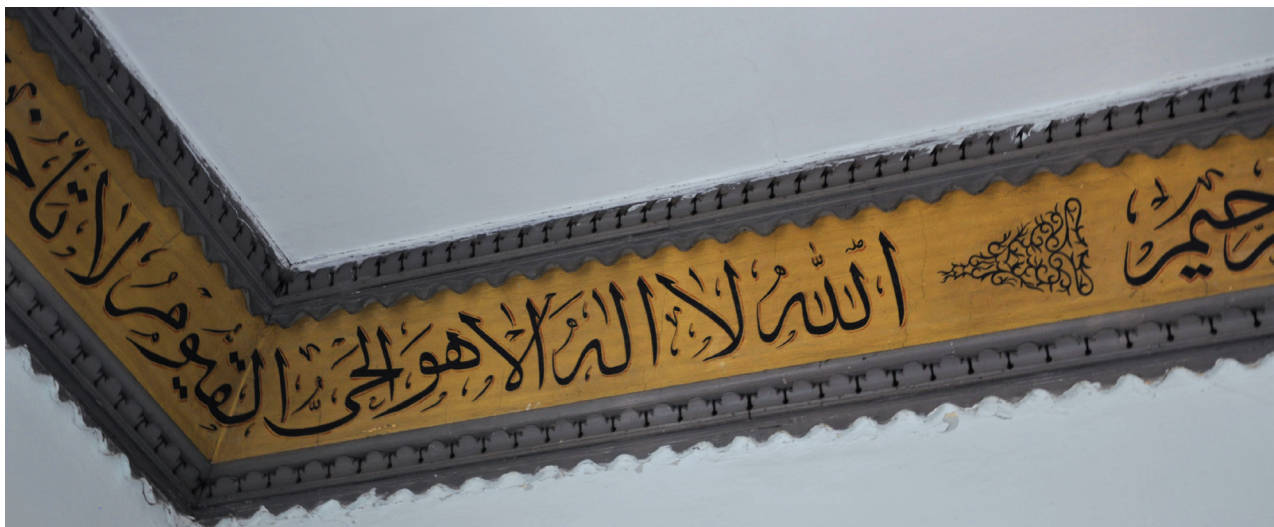 رحيم الله لا اله الا هو الحي القيوم لا تأخذ